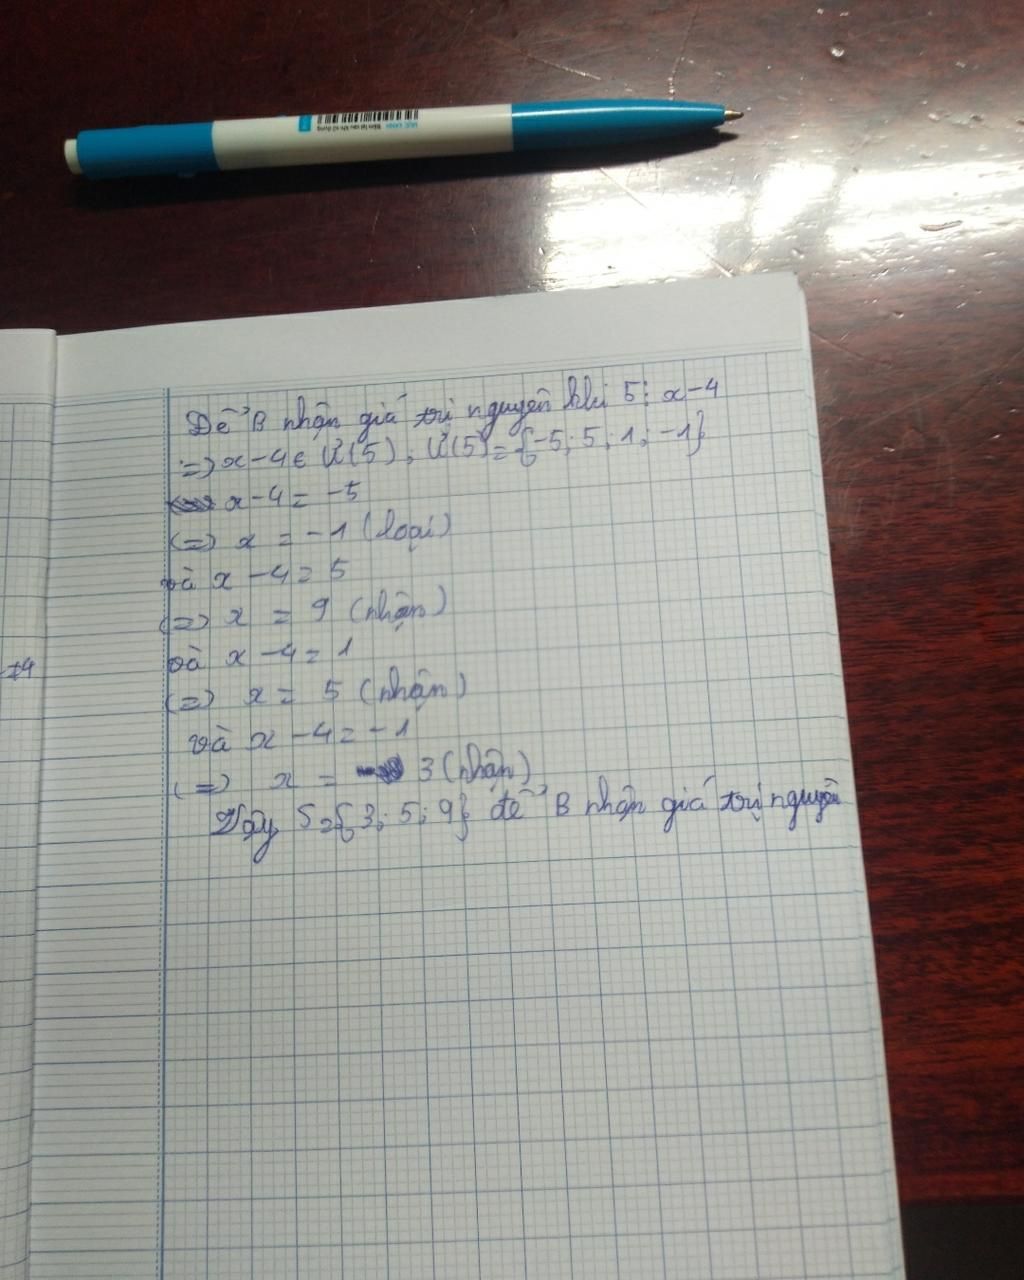 Để B nhận giá trị nguyên khi 5⋮x-4
=> x-4 ∈ Ư(5), Ư(5)={-5; 5; 1; -1}
x-4 = -5
(=) x = -1 (loại)
và x-4 = 5
(=) x = 9 (nhận)
và x-4 = 1
(=) x = 5 (nhận)
và x-4 = -1
(=) x = 3 (nhận)
Vậy S={3; 5; 9} để B nhận giá trị nguyên
≠4